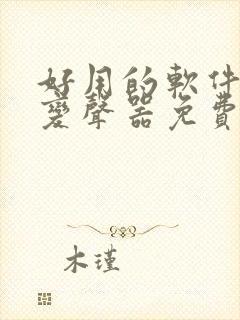 好用的軟件
變聲器免費
木瑾